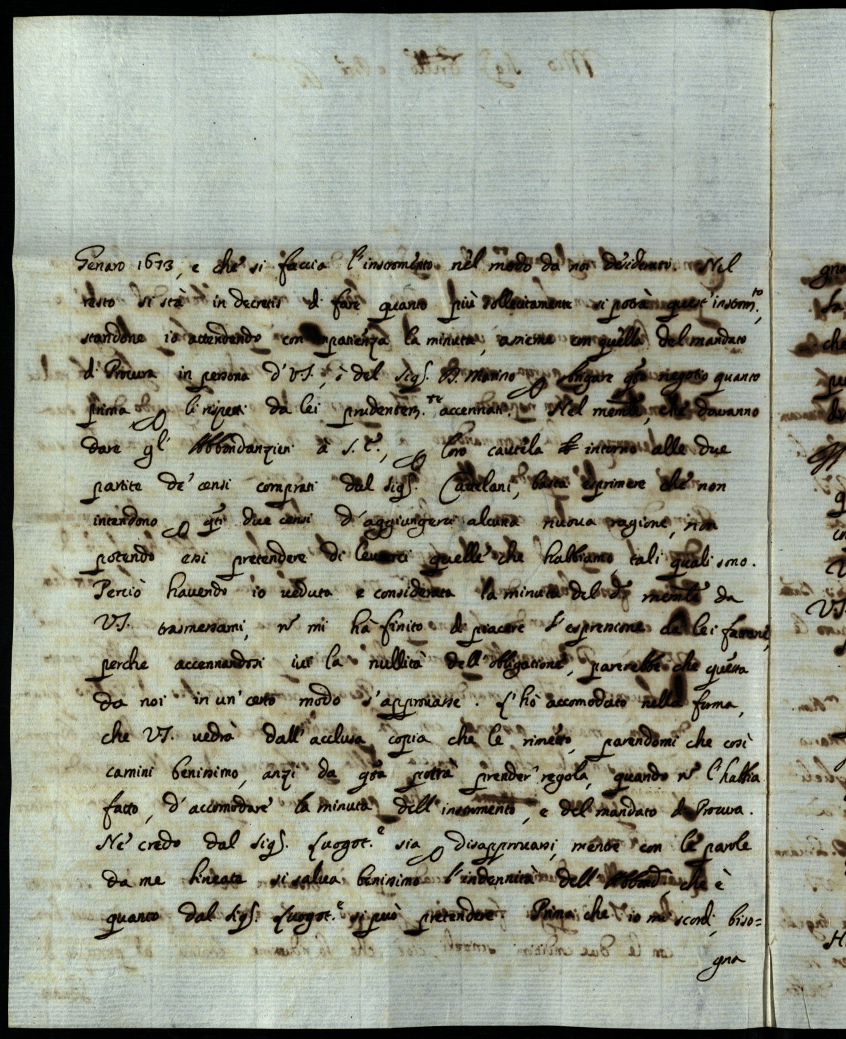 Genaro 1673, e che si faccia l'instromento nel modo da noi desiderato. Nel
resto si stà in decretis di fare quanto più sollecitamente si potrà quest'instrom.to,
standone io attendendo con patienza la minuta, assieme con quella del mandato
di Procura in persona d'VS., ò del Sig.r Marino negotio quanto
prima li rispetti da lei prudentem.te accennati. Nel mentre, che dovranno
dare gl'Abbondanzieri à S. loro cautela intorno alle due
partite de' censi comprati dal Sig.r Catelani, basta esprimere che non
intendono due censi d'aggiungerci alcuna nuova ragione, non
potendo essi pretendere di levarci quelle che habbiamo, tali quali sono.
Perciò havendo io veduta e considerata la minuta del da
VS. trasmessami, mi hà finito di piacere l'espressione da lei fattane,
perche accennandosi ivi la nullità dell'obligatione, parerebbe che questa
da noi in un certo modo s'approvasse. L'hò accomodato nella forma,
che VS. vedrà dall'acclusa copia che le rimetto, parendomi che così
camini benissimo, anzi da potrà prender regola, quando l'habbia
fatto, d'accomodare la minuta dell'instromento, e del mandato di Procura.
Nè credo dal Sig.r Luogot.e sia disapprovarsi, mentre con le parole
da me lineate si salva benissimo l'indennità dell'Abbond.a che è
quanto dal Sig.r Luogot.e si può pretendere. Prima che io me scordi, biso=
gna